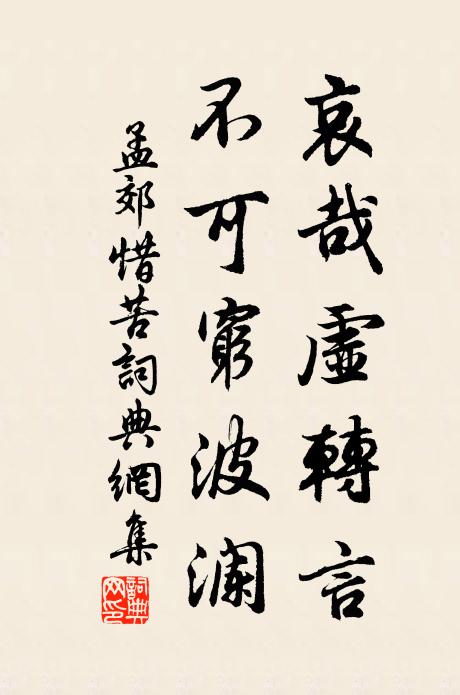 哀哉虛轉言
不可窮波澜
孟郊惜苦詞典網集
詞典